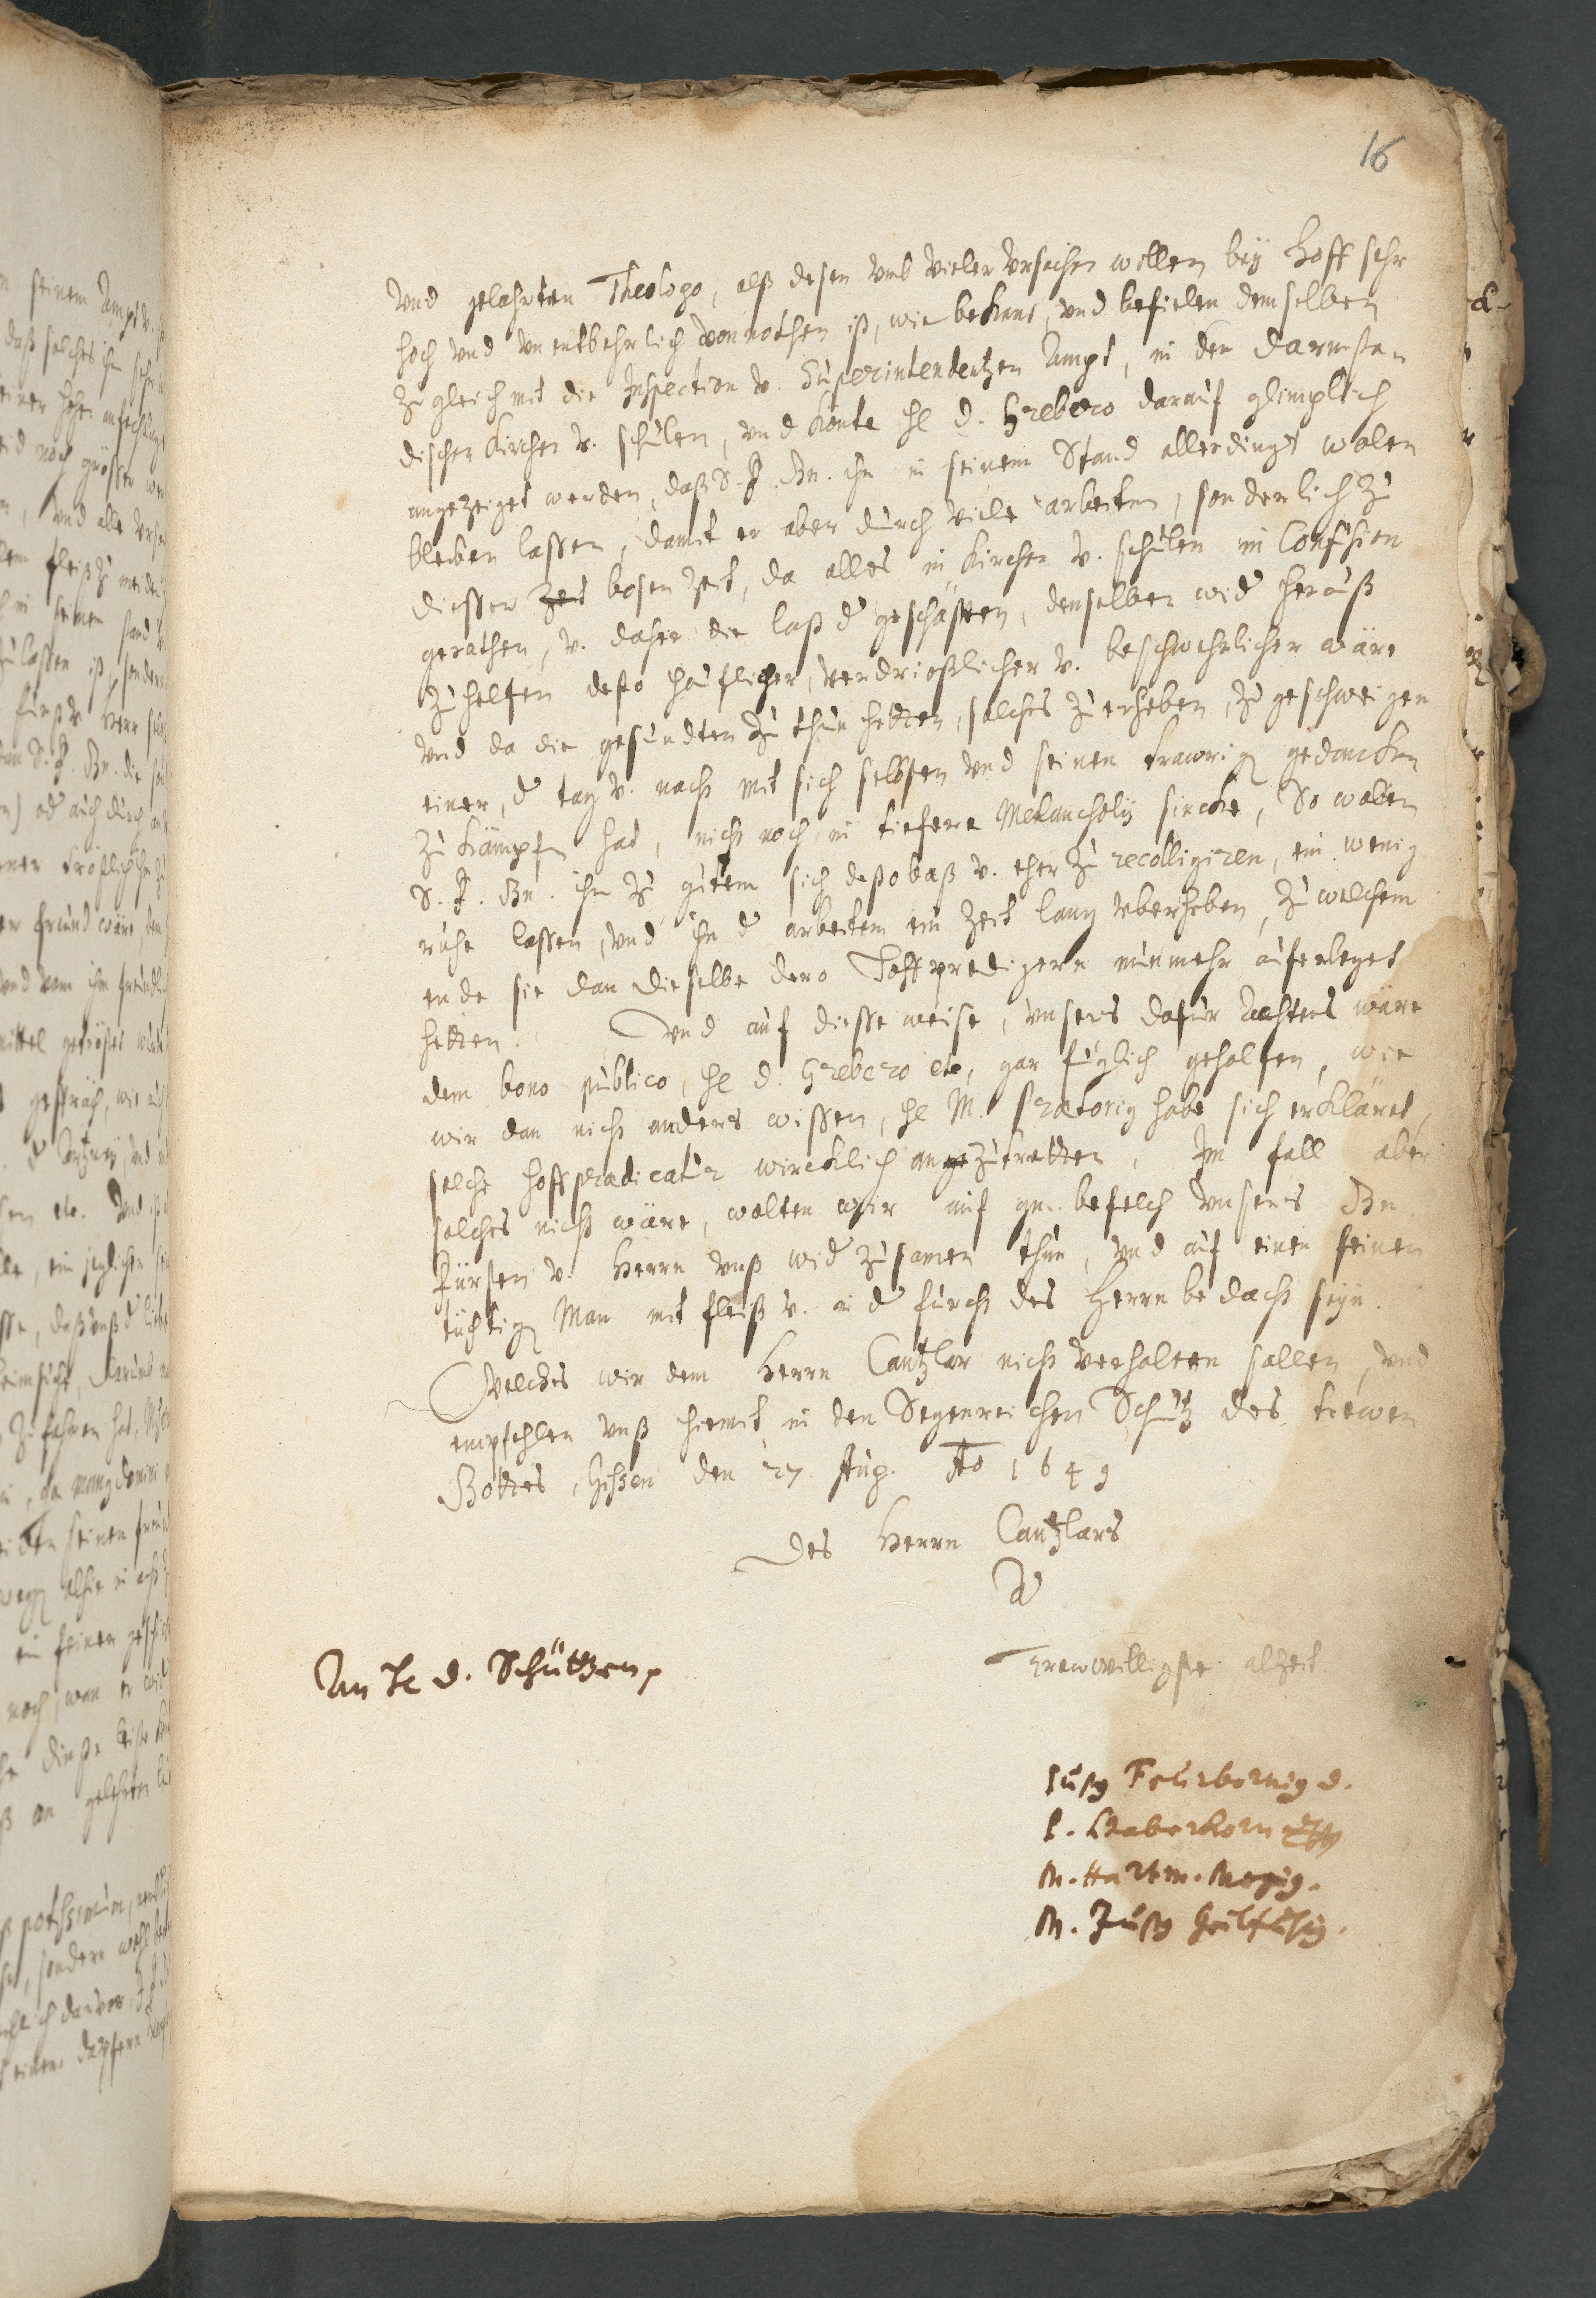 16
vnd gelahrten Theologo, alß desen vmb vieler vrsachen willen bey Hoff sehr
hoch vnd vnentbehrlich vonnothen ist, wie bekant, vnd befielen demselben
zugleich mit die Inspection v. Superintendentzen Ampt, in den Darmstan
dischen Kirchen v. schulen, vnd könte He D. Grebero darauf glimplich
angezeiget werden, daß S. F. Gn. ihn in seinem Stand allerdings wolen
bleiben lassen, damit er aber durch viele arbeiten, sonderlich zu
diesser zeit bosen zeit, da alles in Kirchen v. schulen in Confusion
gerathen, v. daher die last d geschäften, denselben wid herauß
zu helfen desto häuflicher, verdrießlicher v. beschwehrlicher wäre
vnd da die gesundten zu thun hetten, solches zu erheben, zu geschweigen
einer, d tag v. nacht mit sich selbsten vnd seinen trawrig gedancken
zu kämpfen hat, nicht noch in tiefere Melancholy sincke, So wolten
S. F. Gn. ihn zu gutem sich desto baß v. eher zu recolligiren, ein wenig
ruhe lassen, vnd ihn d arbeiten ein zeit lang vberheben, zu welchem
ende sie dan dieselbe dero Hoffpredigern nunmehr auferleget
hetten. Vnd auf diesse weise, vnsers dafür achtens wäre
dem bono publico, He D. Grebero etc, gar füglich geholfen, wie
wir dan nicht anders wissen, He M. Pratorig habe sich erkläret,
solche hoffpradicatur wircklich anzutretten, Im fall aber
solches nicht wäre, wolten wir auf gn. befelch vnsers Gn.
Fürsten v. Herrn vnß wid zusamen thun, vnd auf einen feinen
tüchtig Man mit fleiß v. in d furcht des Herrn bedacht seyn.
Welches wir dem Herrn Cantzlar nicht verhalten sollen, vnd
empfehlen vnß hiemit in den Segenreichen Schutz des trewen
Gottes, Gissen den 27 Aug. Ao 1649
Des Herrn Cantzlars
Trewwilligste alzeit
An He D. Schützen
Just9 Feurbornig D.
P. Haberkorn
M. Hartm. Mogig.
M. Just9 Geilfusig.